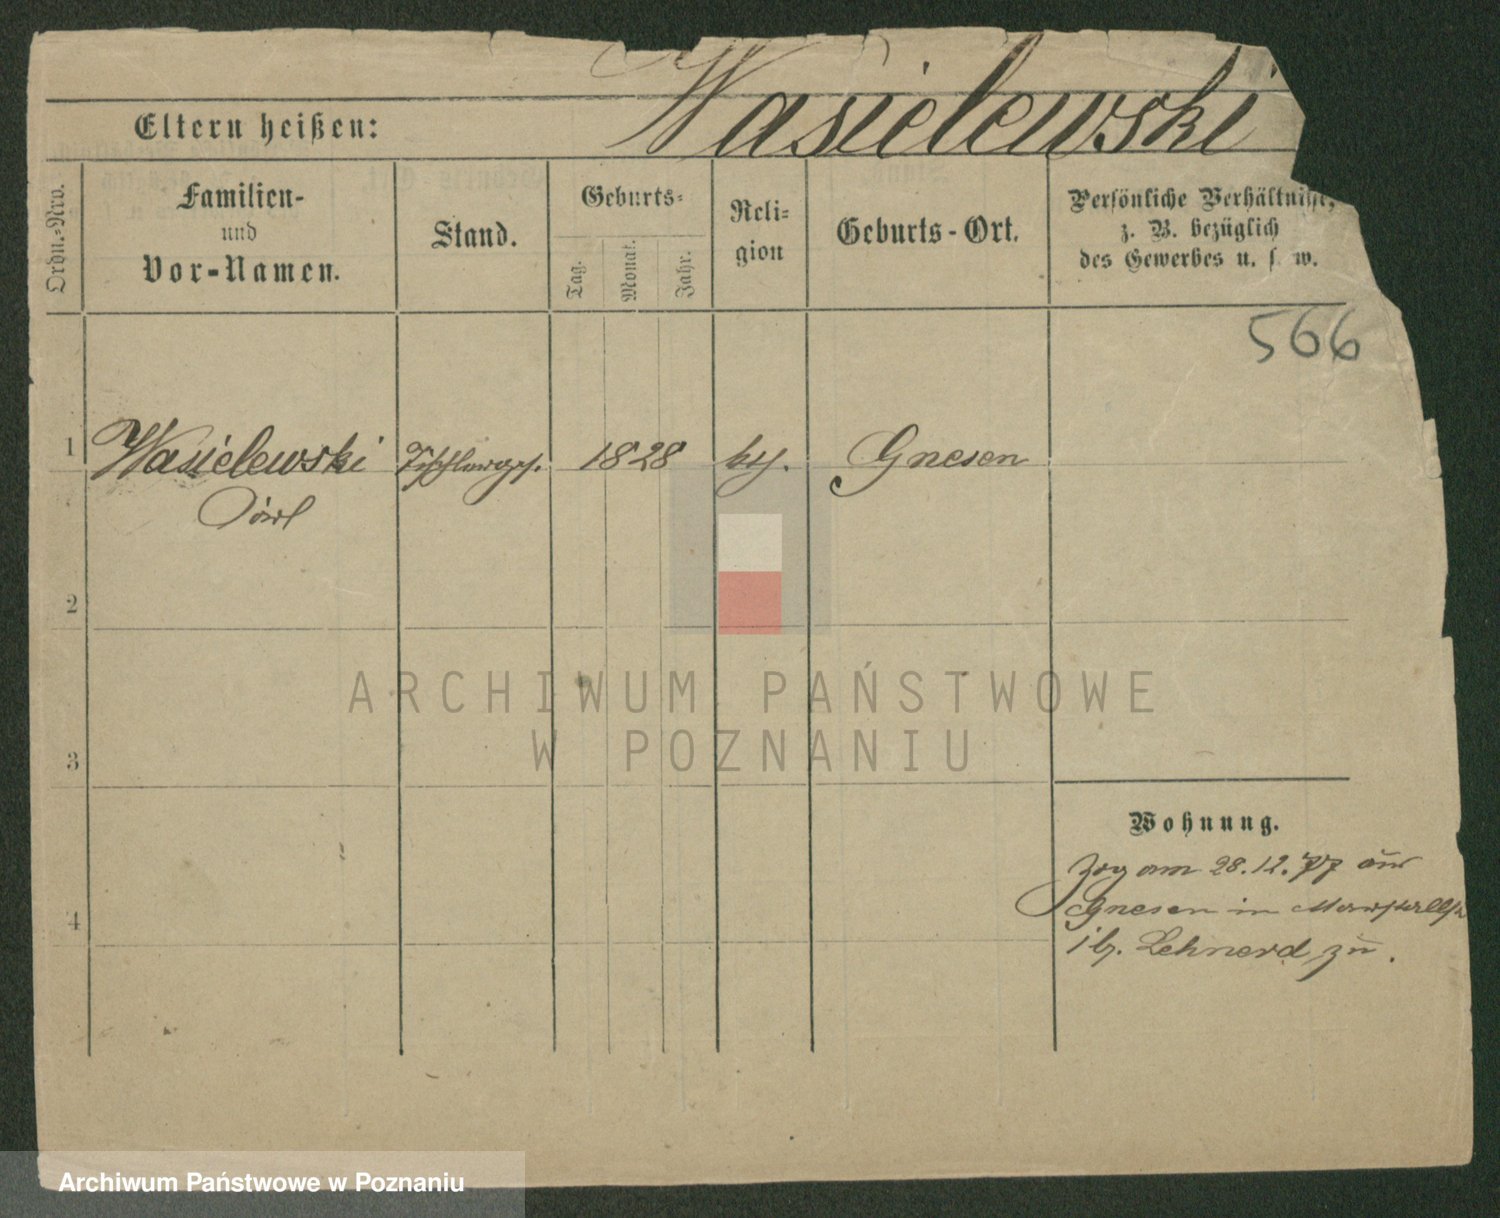 Wasielewski
Eltern heißen:
Ordn.-Nro.
Familien-
und
Vor-Namen.
Stand.
Geburts-
Tag.
Monat.
Jahr.
Reli-
gion
Geburts-Ort.
Persönliche Verhältnisse,
z. B. bezüglich
des Gewerbes u. s. w.
566
1 Wasielewski Tischlerges. 1828 kth. Gnesen
2
3
4
Wohnung.
Zog am 28.12.77 aus
Gnesen in
b. Lehnerd zu.
ARCHIWUM PAŃSTWOWE
W POZNANIU
Archiwum Państwowe w Poznaniu